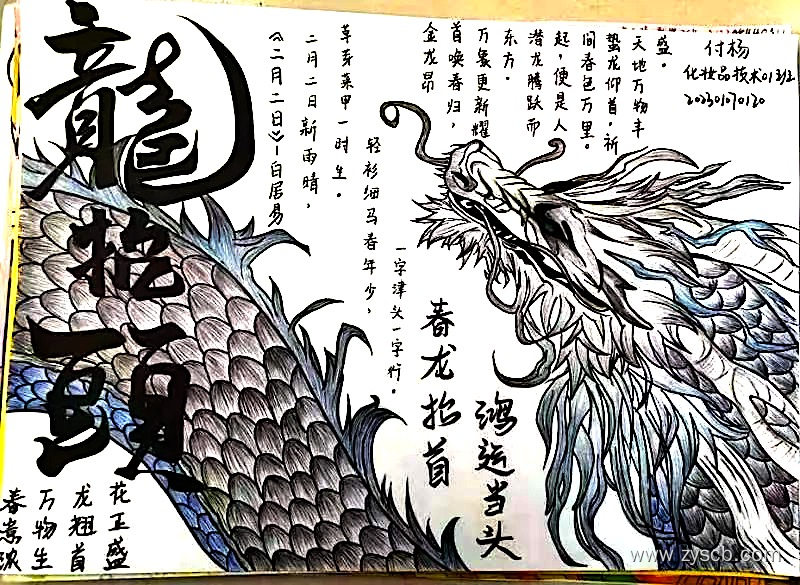 龍抬頭
付杨
化妆品技术
金龙昂
首唤春归,
万象更新耀
东方。
潜龙腾跃而
起,便是人
间春色万里。
蛰龙仰首,祈
天地万物丰
盛。
《二月二日》—白居易
二月二日新雨晴,
草芽菜甲一时生。
轻衫细马春年少,
一字津头一字行。
春龙抬首
鸿运当头
春意浓
万物生
龙翘首
花正盛
www.zyscb.com